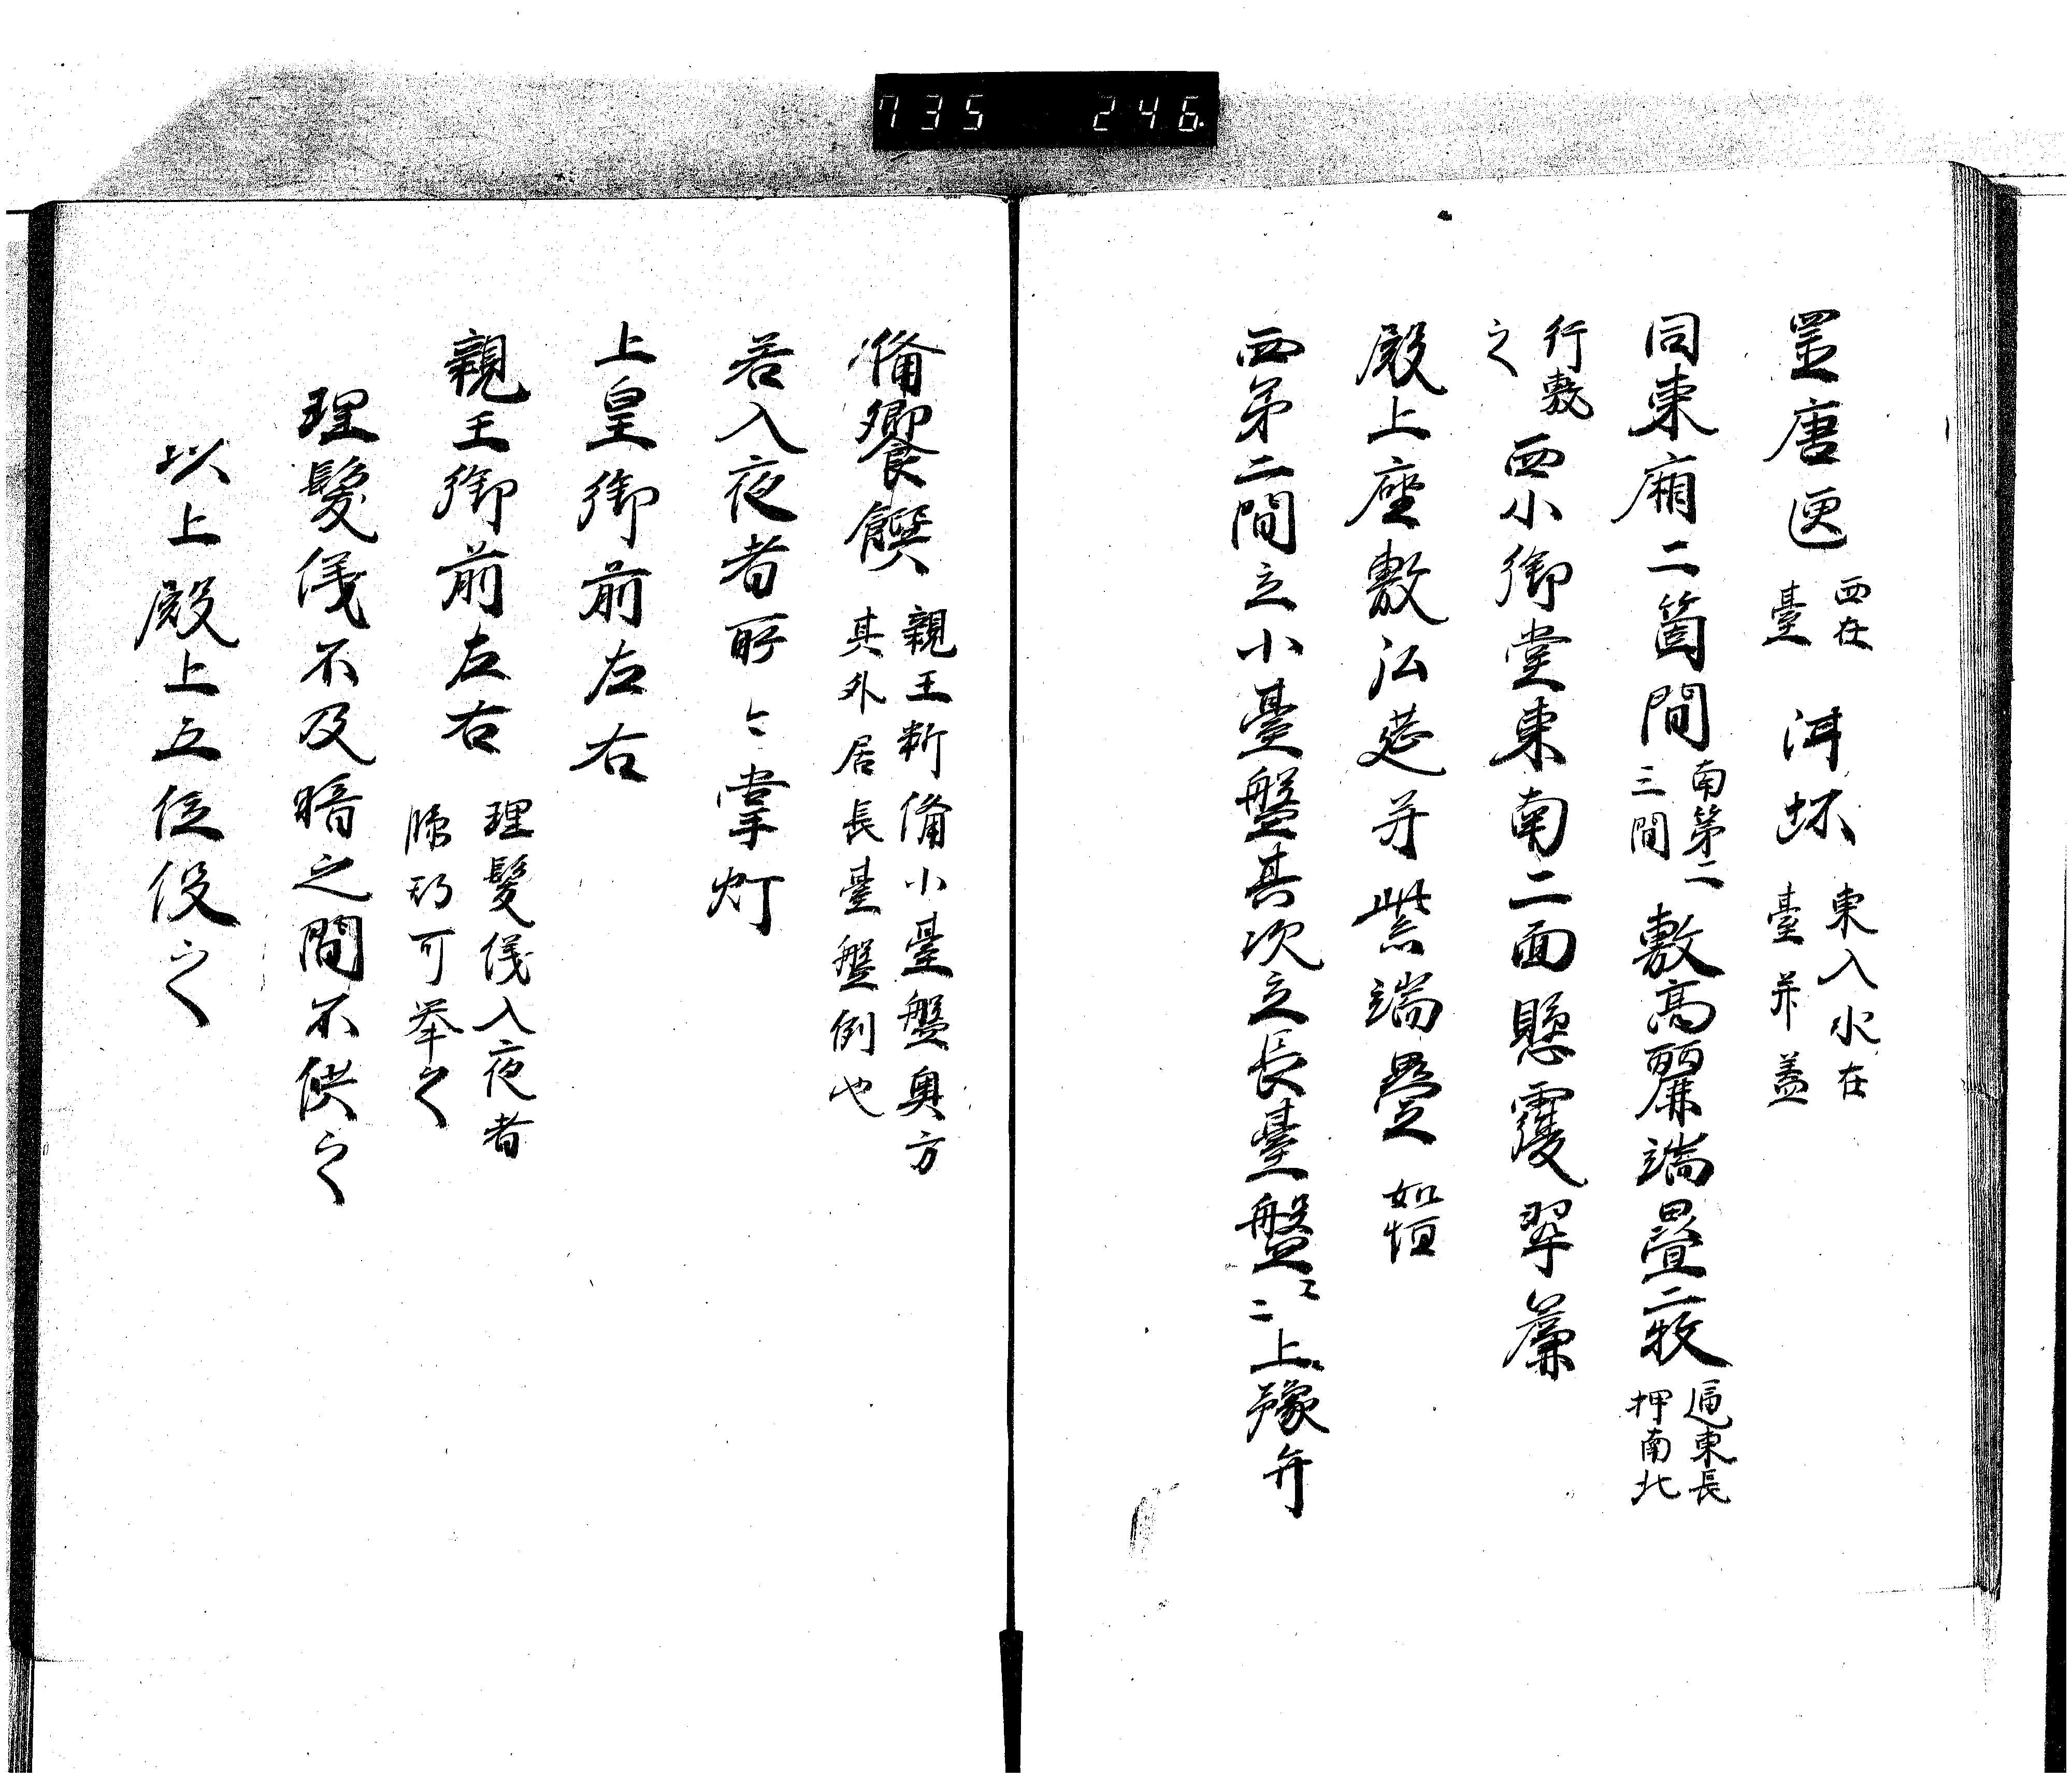 735 246
置唐匣
西在
臺
泔坏
東入水在
臺并蓋
同東廂二箇間
南第二
三間
敷高麗端疊二枚
逼東長
押南北
行敷
之
西小御堂東南二面懸覆翠簾
殿上座敷弘莚并紫端疊
如恒
西第二間立小臺盤其次立長臺盤
二
上豫弁
備饗饌
親王新備小臺盤奥方
其外居長臺盤例也
若入夜者所〻掌灯
上皇御前左右
親王御前左右
理髪儀入夜者
可举之
理髪儀不及暗之間不供之
以上殿上五位役之